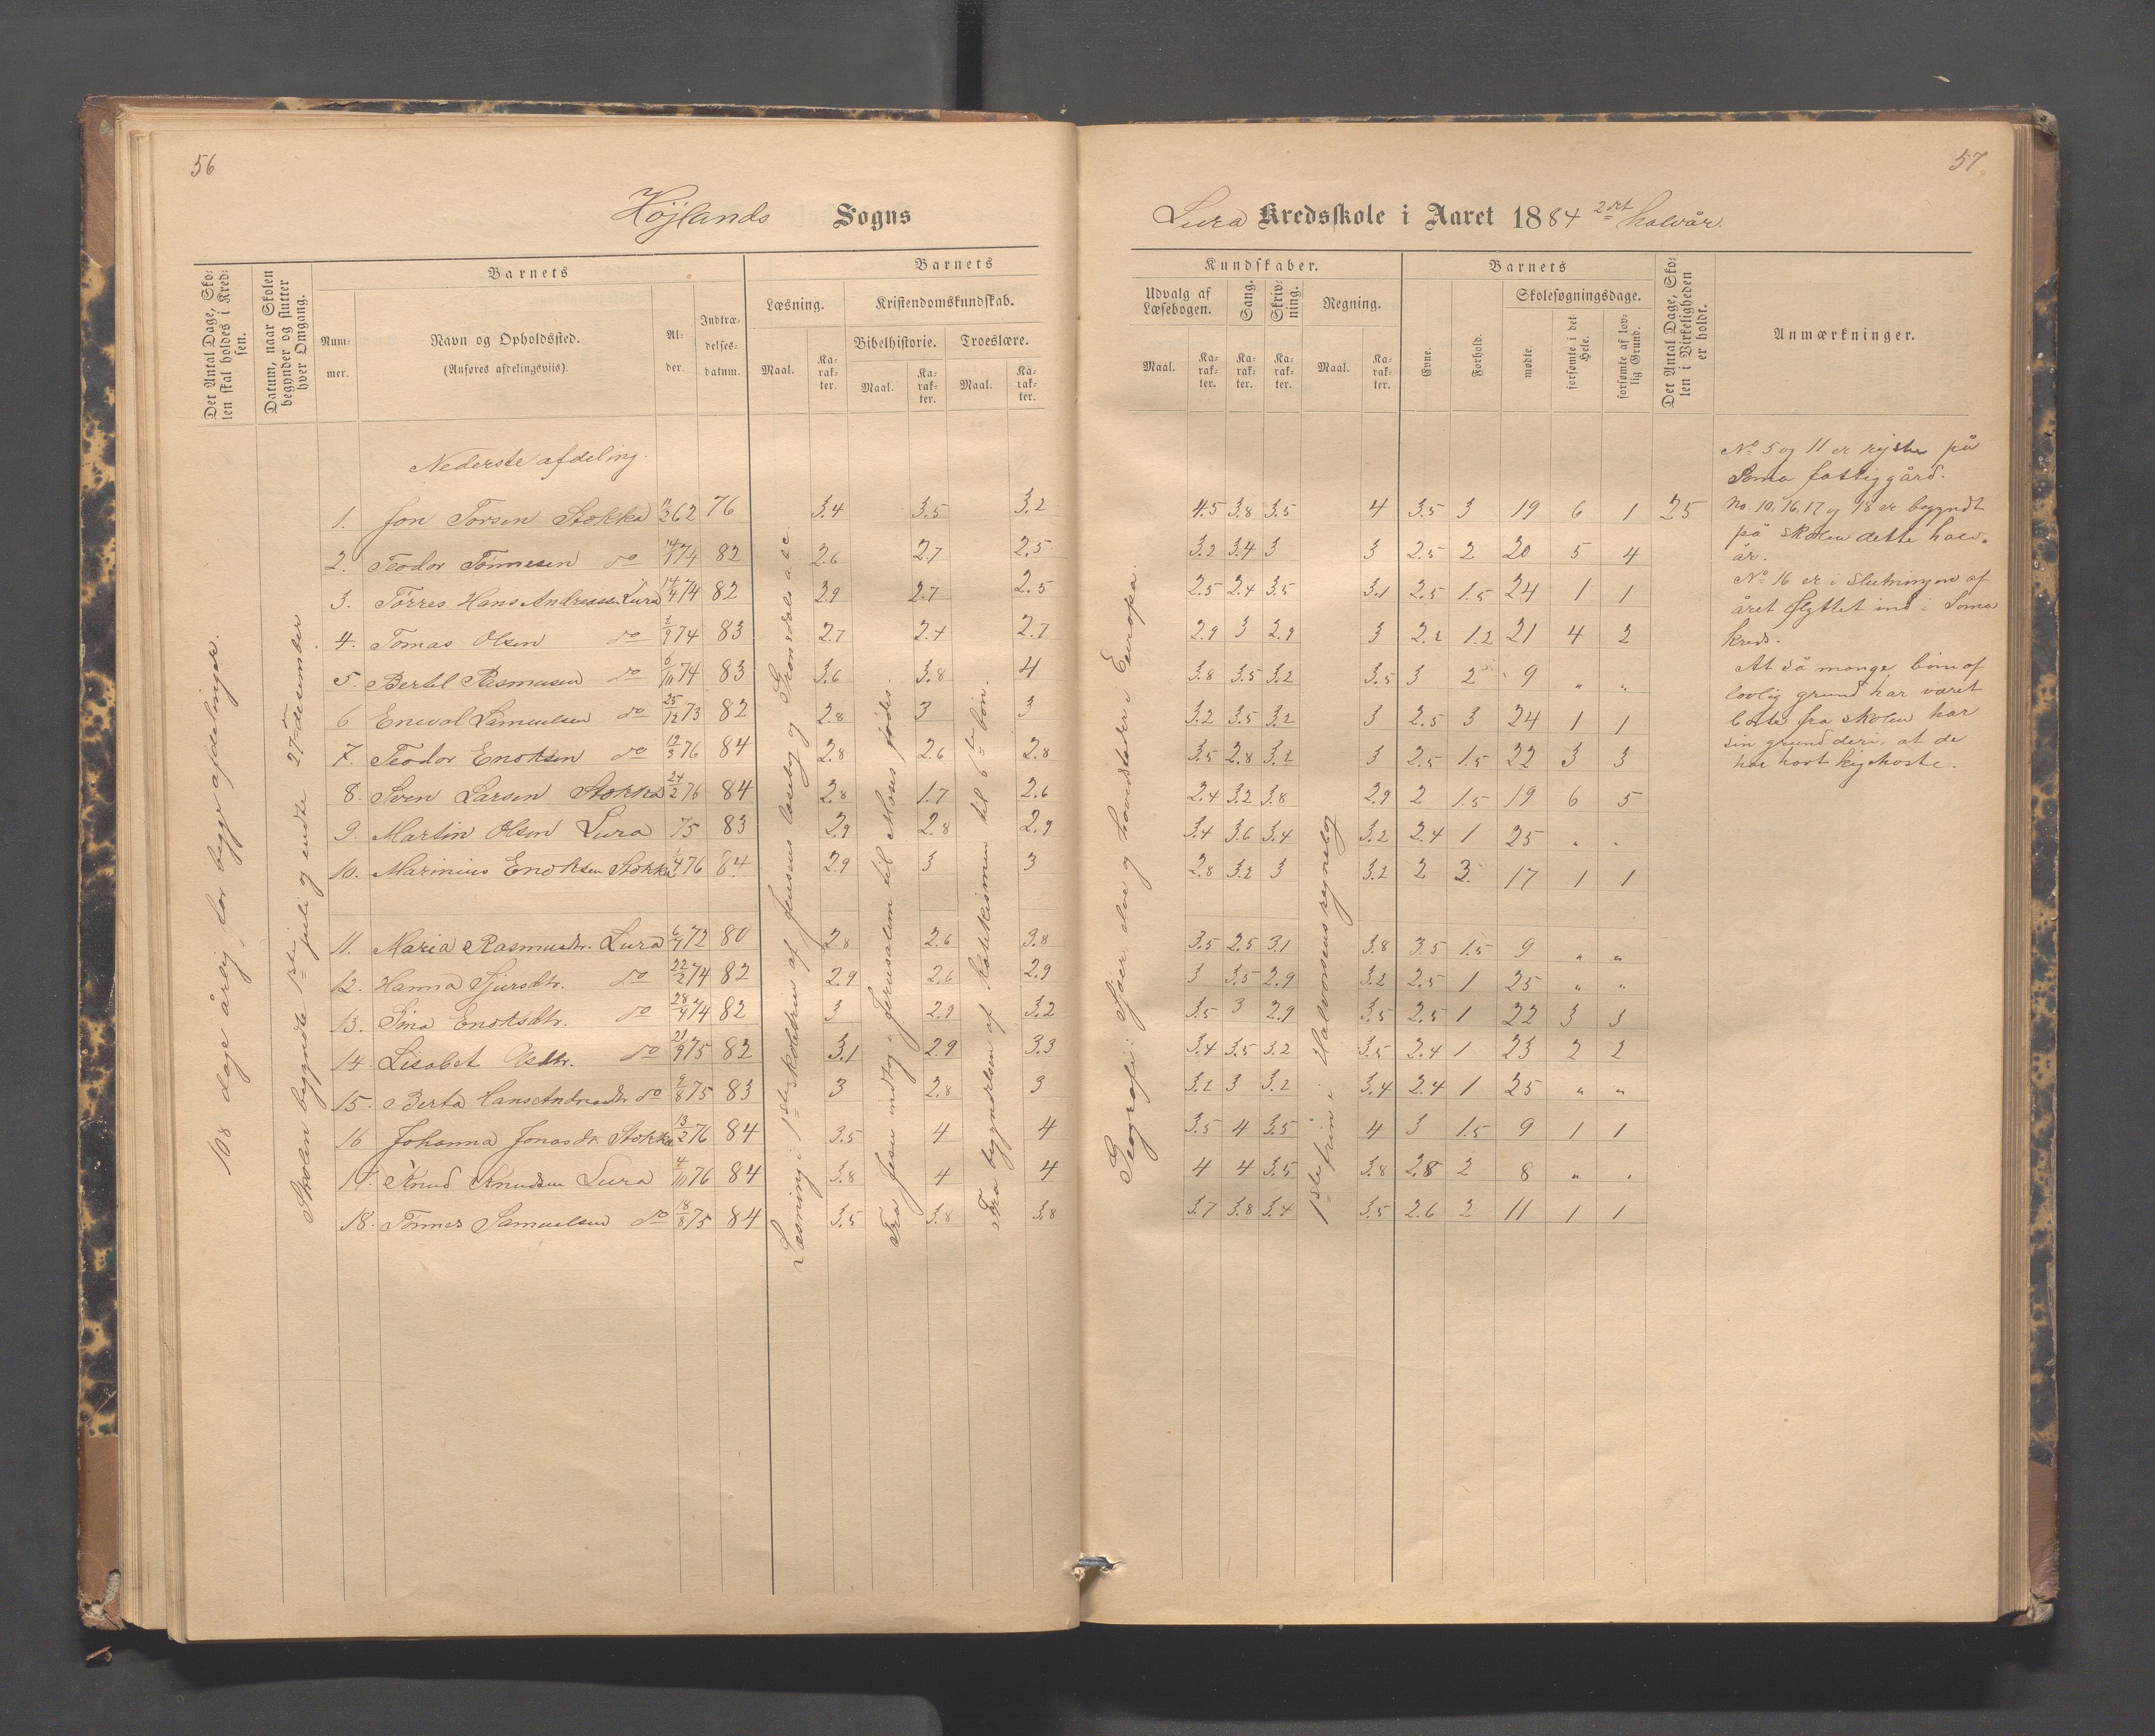 56
Højlands Sogns
Det Antal Dage, Skolen skal holdes i Kredsen.
Datum, naar Skolen begynder og slutter hver Omgang.
Barnets
Nummer.
Navn og Opholdssted.
(Anføres afdelingsviis).
Alder.
Indtrædelsesdatum.
Barnets
Læsning.
Kristendomskundskab.
Bibelhistorie.
Troeslære.
Maal.
Karakter.
Maal.
Karakter.
Maal.
Karakter.
108 dage årlig for begge afdelinger.
Skolen begyndte 1ste juli og endte 27de desember
Læsning i 1ste skoletrin af Jensens læsebog og Gronsdals abc.
Fra Jesu indtog i Jerusalem til Moses fødes.
Fra begyndelsen af katekismen til 6te bøn.
Nederste afdeling.
1. Jon Torsen Stokka 11/2 62 76 3.4 3.5 3.2
2. Teodor Tønnesen do 14/1 74 82 2.6 2.7 2.5
3. Tørres Hans Andreassen Lura 14/4 74 82 2.9 2.7 2.5
4. Tomas Olsen do 2/9 74 83 2.7 2.4 2.7
5. Bertel Rasmusen do 6/10 74 83 3.6 3.8 4
6 Enevol Samuelsen do 25/12 73 82 2.8 3 3
7. Teodor Enoksen do 12/3 76 84 2.8 2.6 2.8
8. Sven Larsen Stokka 24/2 76 84 2.8 1.7 2.6
9. Martin Olsen Lura 75 83 2.9 2.8 2.9
10. Marinius Enoksen Stokka 1/4 76 84 2.9 3 3
11. Maria Rasmusdtr. Lura 6/4 72 80 2.8 2.6 3.8
12. Hanna Sjursdtr. do 22/2 74 82 2.9 2.6 2.9
13. Sina Enoksdtr. do 28/9 74 82 3 2.9 3.2
14. Lisabet Olsdtr. do 21/9 75 82 3.1 2.9 3.3
15. Berta Hans Andreasdtr do 2/8 75 83 3 2.8 3
16 Johanna Jonasdtr. Stokka 13/2 76 84 3.5 4 4
17. Knud Knudsen Lura 4/10 76 84 3.8 4 4
18. Tønnes Samuelsen do 18/8 75 84 3.5 3.8 3.8
57.
Lura Kredsskole i Aaret 1884 2det halvår.
Kundskaber.
Udvalg af Læsebogen.
Sang.
Skrivning.
Regning.
Maal.
Karakter.
Karakter.
Karakter.
Maal.
Karakter.
Barnets
Evne.
Forhold.
Skolesøgningsdage.
mødte.
forsømte i det Hele.
forsømte af lovlig Grund.
Det Antal Dage, Skolen i Virkeligheden er holdt.
Anmærkninger.
Geografi: Søer elve og hovedstæder i Europa.
1ste trin i Halvorsens regnebog
4.5 3.8 3.5 4 3.5 3 19 6 1 25
3.2 3.4 3 3 2.5 2 20 5 4
2.5 2.4 3.5 3.1 2.5 1.5 24 1 1
2.9 3 2.9 3 2.2 1.2 21 4 2
3.8 3.5 3.2 3.5 3 2 9 „ „
3.2 3.5 3.2 3 2.5 3 24 1 1
3.5 2.8 3.2 3 2.5 1.5 22 3 3
2.4 3.2 3.8 2.9 2 1.5 19 6 5
3.4 3.6 3.4 3.2 2.4 1 25 „ „
2.8 3.2 3 3.2 2 3. 17 1 1
3.5 2.5 3.1 3.8 3.5 1.5 9 „ „
3 3.5 2.9 3.2 2.5 1 25 „ „
3.5 3 2.9 3.5 2.5 1 22 3 3
3.4 3.5 3.2 3.5 2.4 1 23 2 2
3.2 3 3.2 3.4 2.4 1 25 „ „
3.5 4 3.5 4 3 1.5 9 1 1
4 4 3.5 3.8 2.8 2 8 „ „
3.7 3.8 3.4 3.5 2.6 2 11 1 1
No 5 og 11 er rejste på
Soma fattiggård.
No. 10, 16, 17 og 18 er begyndt
på skolen dette halv-
år.
No 16 er i slutningen af
året flyttet ind i Soma
kreds.
At så mange børn af
lovlig grund har været
borte fra skolen har
sin grund deri, at de
har havt kighoste.